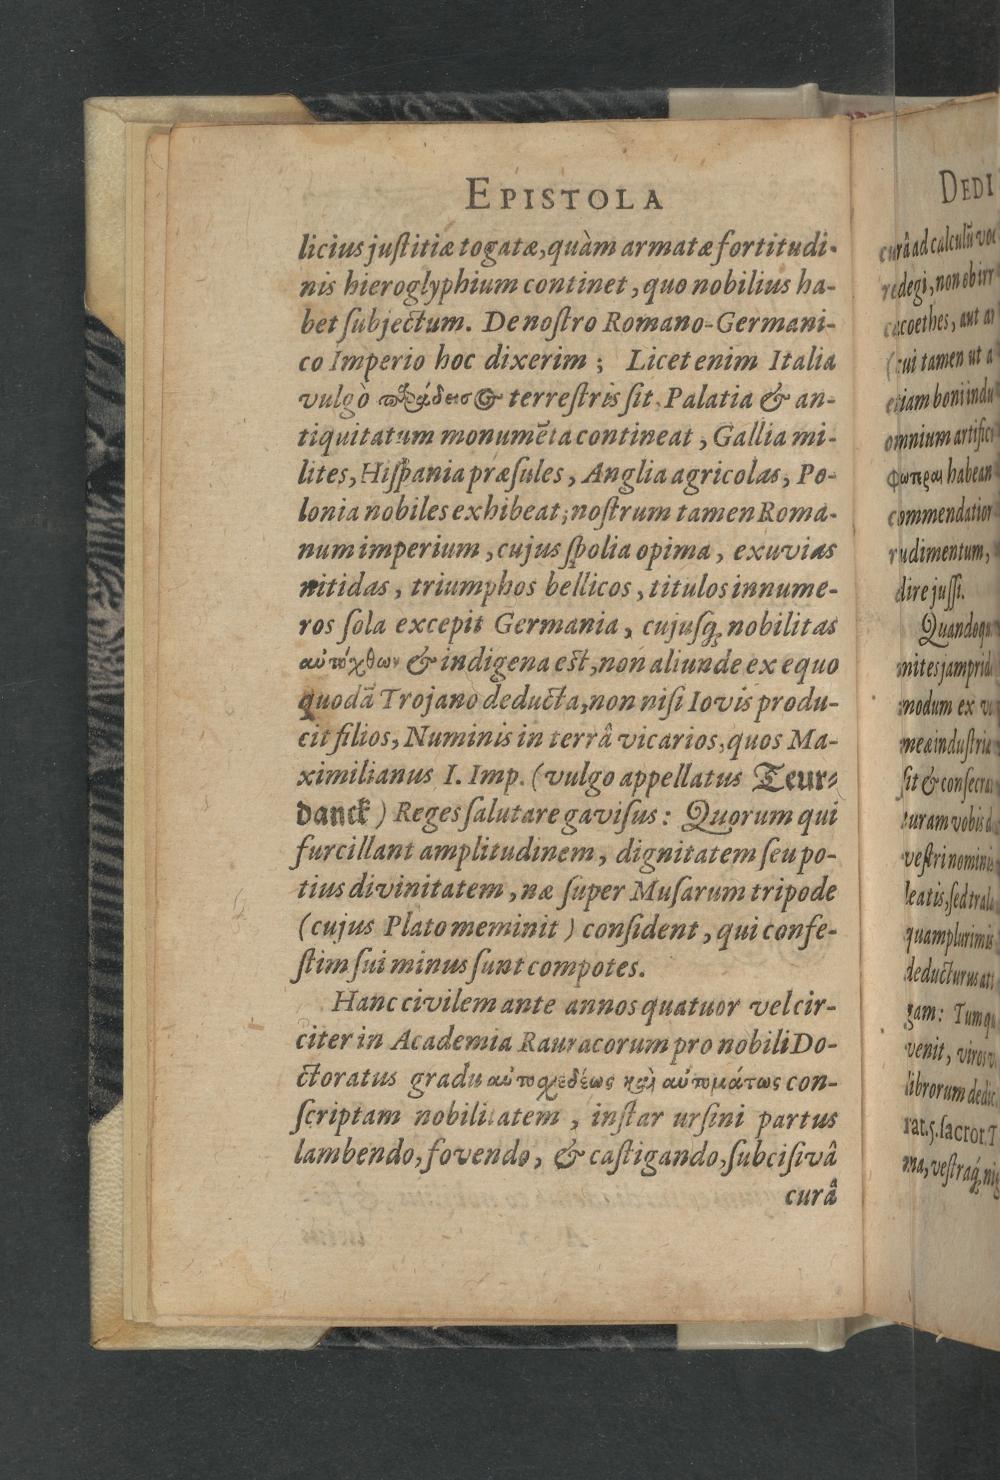 EPISTOLA
licius justitiæ togatæ, quàm armatæ fortitudi-
nis hieroglyphium continet, quo nobilius ha-
bet subjectum. De nostro Romano-Germani-
co Imperio hoc dixerim; Licet enim Italia
vulgò παράδεισος terrestris sit, Palatia & an-
tiquitatum monumēta contineat, Gallia mi-
lites, Hispania præsules, Anglia agricolas, Po-
lonia nobiles exhibeat; nostrum tamen Roma-
num imperium, cujus spolia opima, exuvias
nitidas, triumphos bellicos, titulos innume-
ros sola excepit Germania, cujusq; nobilitas
αὐτόχθων & indigena est, non aliunde ex equo
quodā Trojano deducta, non nisi Iovis produ-
cit filios, Numinis in terrâ vicarios, quos Ma-
ximilianus I. Imp. (vulgo appellatus Teur-
danck) Reges salutare gavisus: Quorum qui
furcillant amplitudinem, dignitatem seu po-
tius divinitatem, næ super Musarum tripode
(cujus Plato meminit) consident, qui confe-
stim sui minus sunt compotes.
Hanc civilem ante annos quatuor vel cir-
citer in Academia Rauracorum pro nobili Do-
ctoratus gradu αὐτοσχεδέως καὶ αὐτομάτως con-
scriptam nobilitatem, instar ursini partus
lambendo, fovendo, & castigando, subcisivâ
curâ
DEDI
curâ ad calculū voc
redegi, non ob irr
cacoethes, aut
(cui tamen ut a
etiam boni indu
omnium artific
φωτεροι habean
commendation
rudimentum,
dire jussi.
Quandoqu
mites jamprid
modum ex
meæ industria
sit & consecra
turam vobis d
vestri nominis
leatis, sed
quamplurimis
deducturus
gam: Tum
venit, viros
librorum dedic
rat. 5. sacror. T
ma, vestraq;